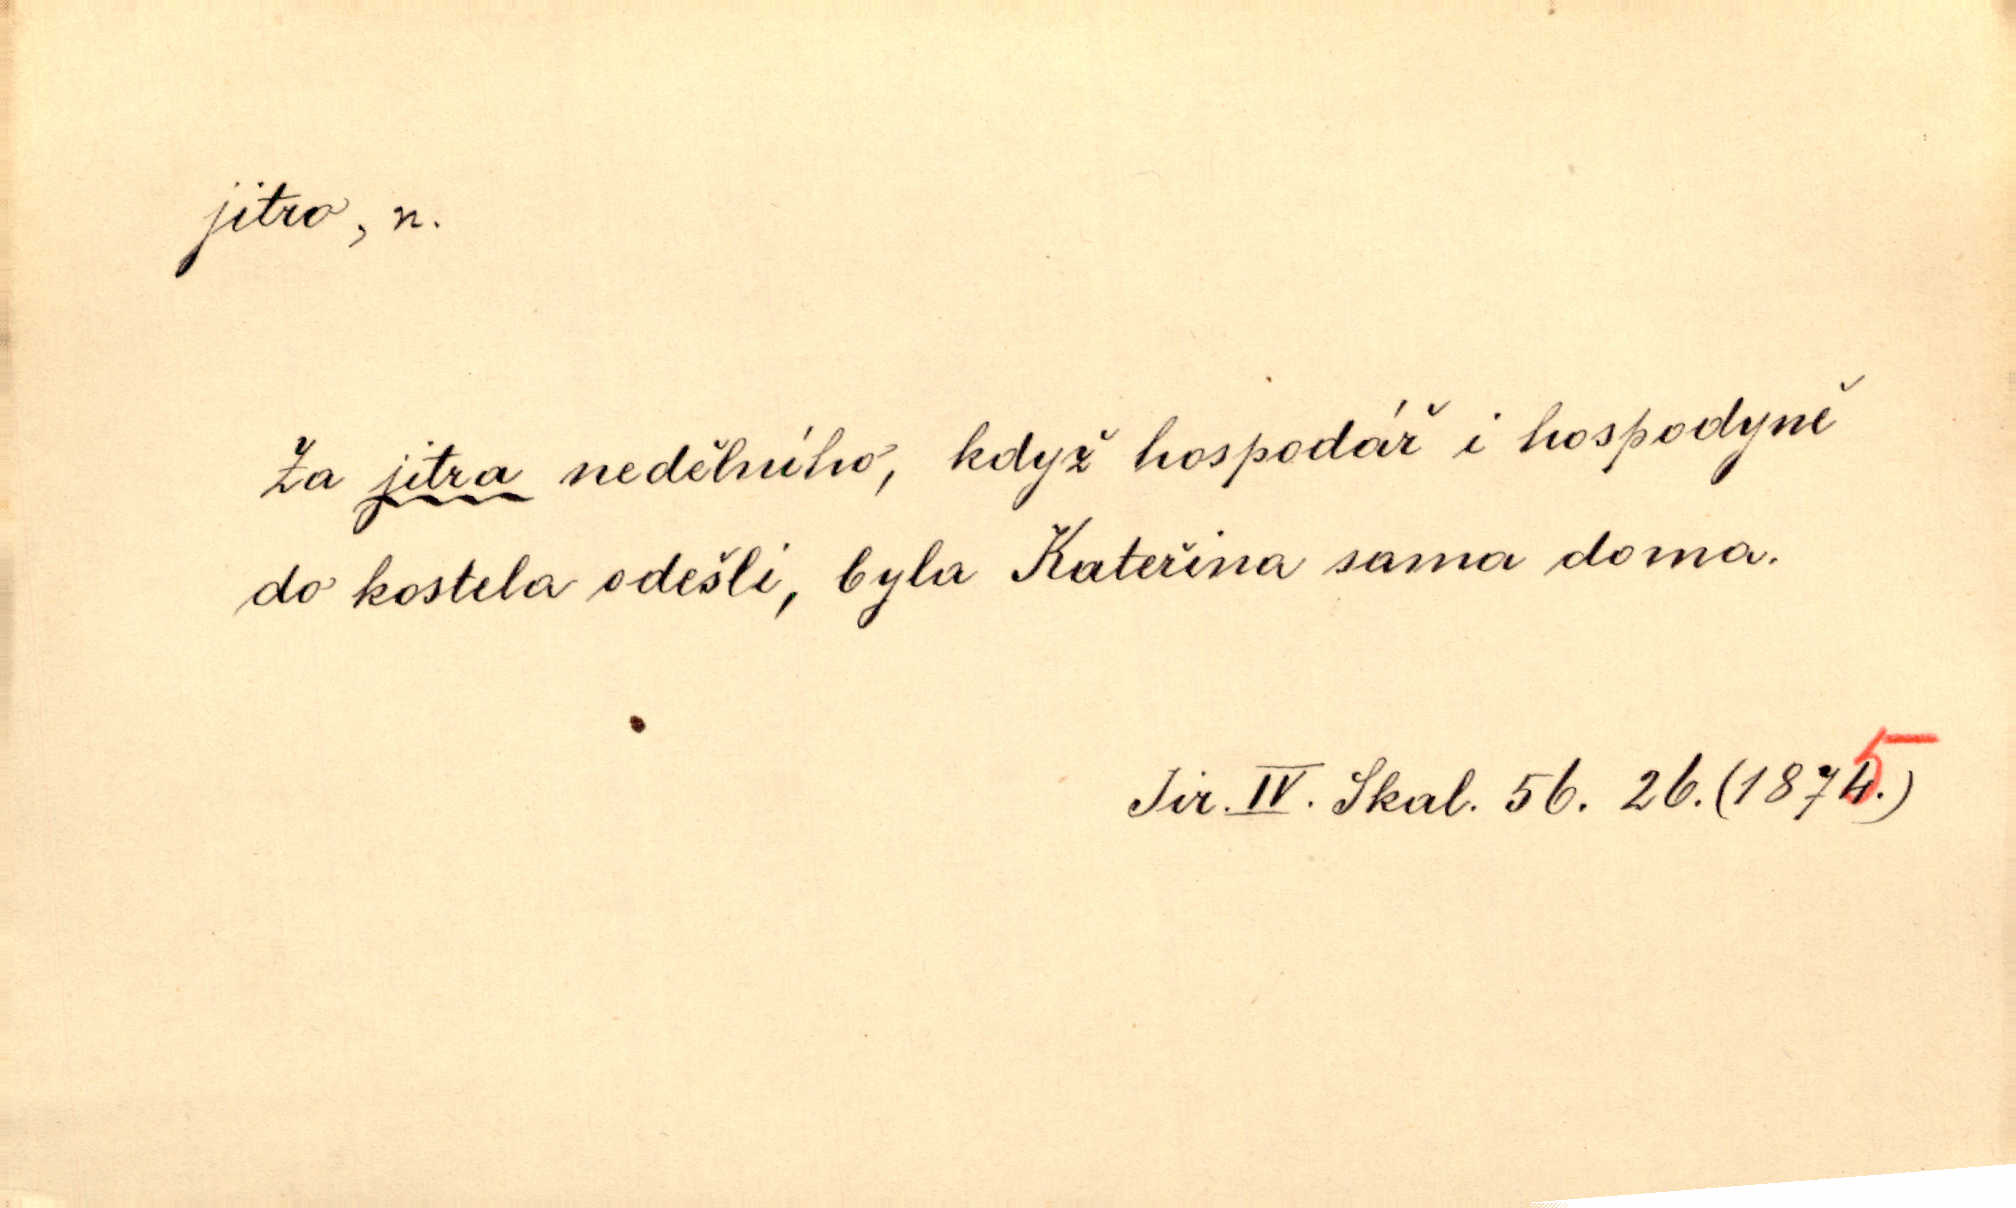 jitro, n.
Za jitra nedělního, když hospodář i hospodyně
do kostela odešli, byla Kateřina sama doma.
Jir. IV. Skal. 56. 26. (1875.)